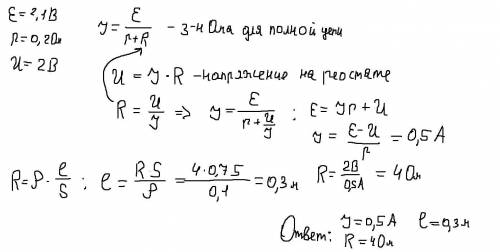 ℰ = 2,1 В
r = 0,2 Ом
U = 2 В
J = ℰ/(r+R) - з-н Ома для полной цепи
U = J · R - напряжение на реостате
R = U/J => J = ℰ/(r + U/J) ; ℰ = Jr + U
J = (ℰ-U)/r = 0,5 А
R = ρ · l/S ; l = RS/ρ = 4·0,75/0,1 = 0,3 м
R = 2В/0,5А = 4 Ом
Ответ: J = 0,5 А l = 0,3 м
R = 4 Ом